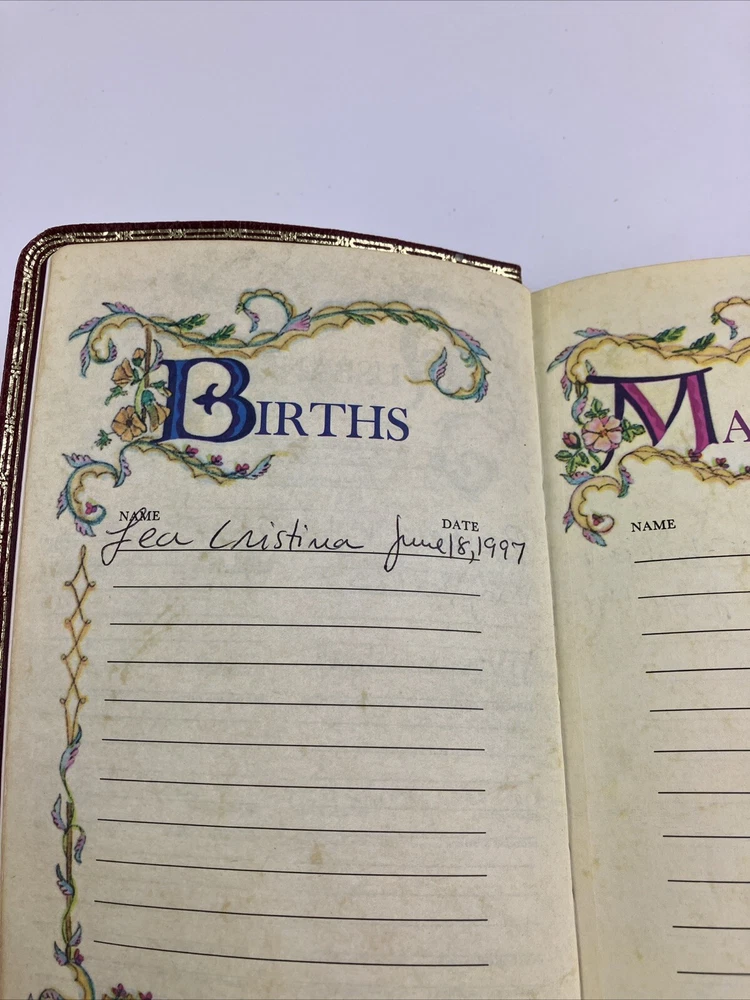 BIRTHS
NAME DATE
Lea Cristina June 18, 1997
MA
NAME